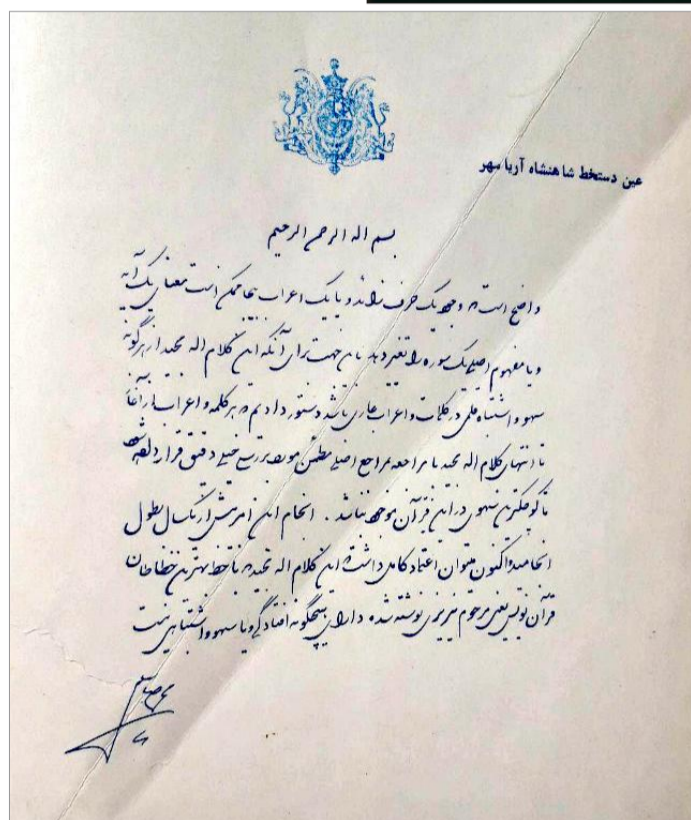 عین دستخط شاهنشاه آریا مهر
بسم اله الرحمن الرحیم
واضح است که وجود یک حرف زائد و یا یک اعراب بیجا ممکن است معنای یک آیه
و یا مفهوم اصلی یک سوره را تغییر دهد باین جهت برای آنکه این کلام اله مجید از هر گونه
سهو و اشتباه ملی در کلمات و اعراب عاری باشد دستور دادیم که هر کلمه و اعراب از آغاز
تا انتهای کلام اله مجید با مراجعه بمراجع اصلی مطمئن مورد بررسی خیلی دقیق قرار داده شود
تا کوچکترین سهوی در این قرآن موجود نباشد . انجام این امر بیش از یکسال بطول
انجامید و اکنون میتوان اعتماد کامل داشت که این کلام اله مجید که با خط بهترین خطاطان
قرآن نویس یعنی مرحوم نیریزی نوشته شده دارای هیچگونه افتادگی و یا سهو و اشتباهی نیست